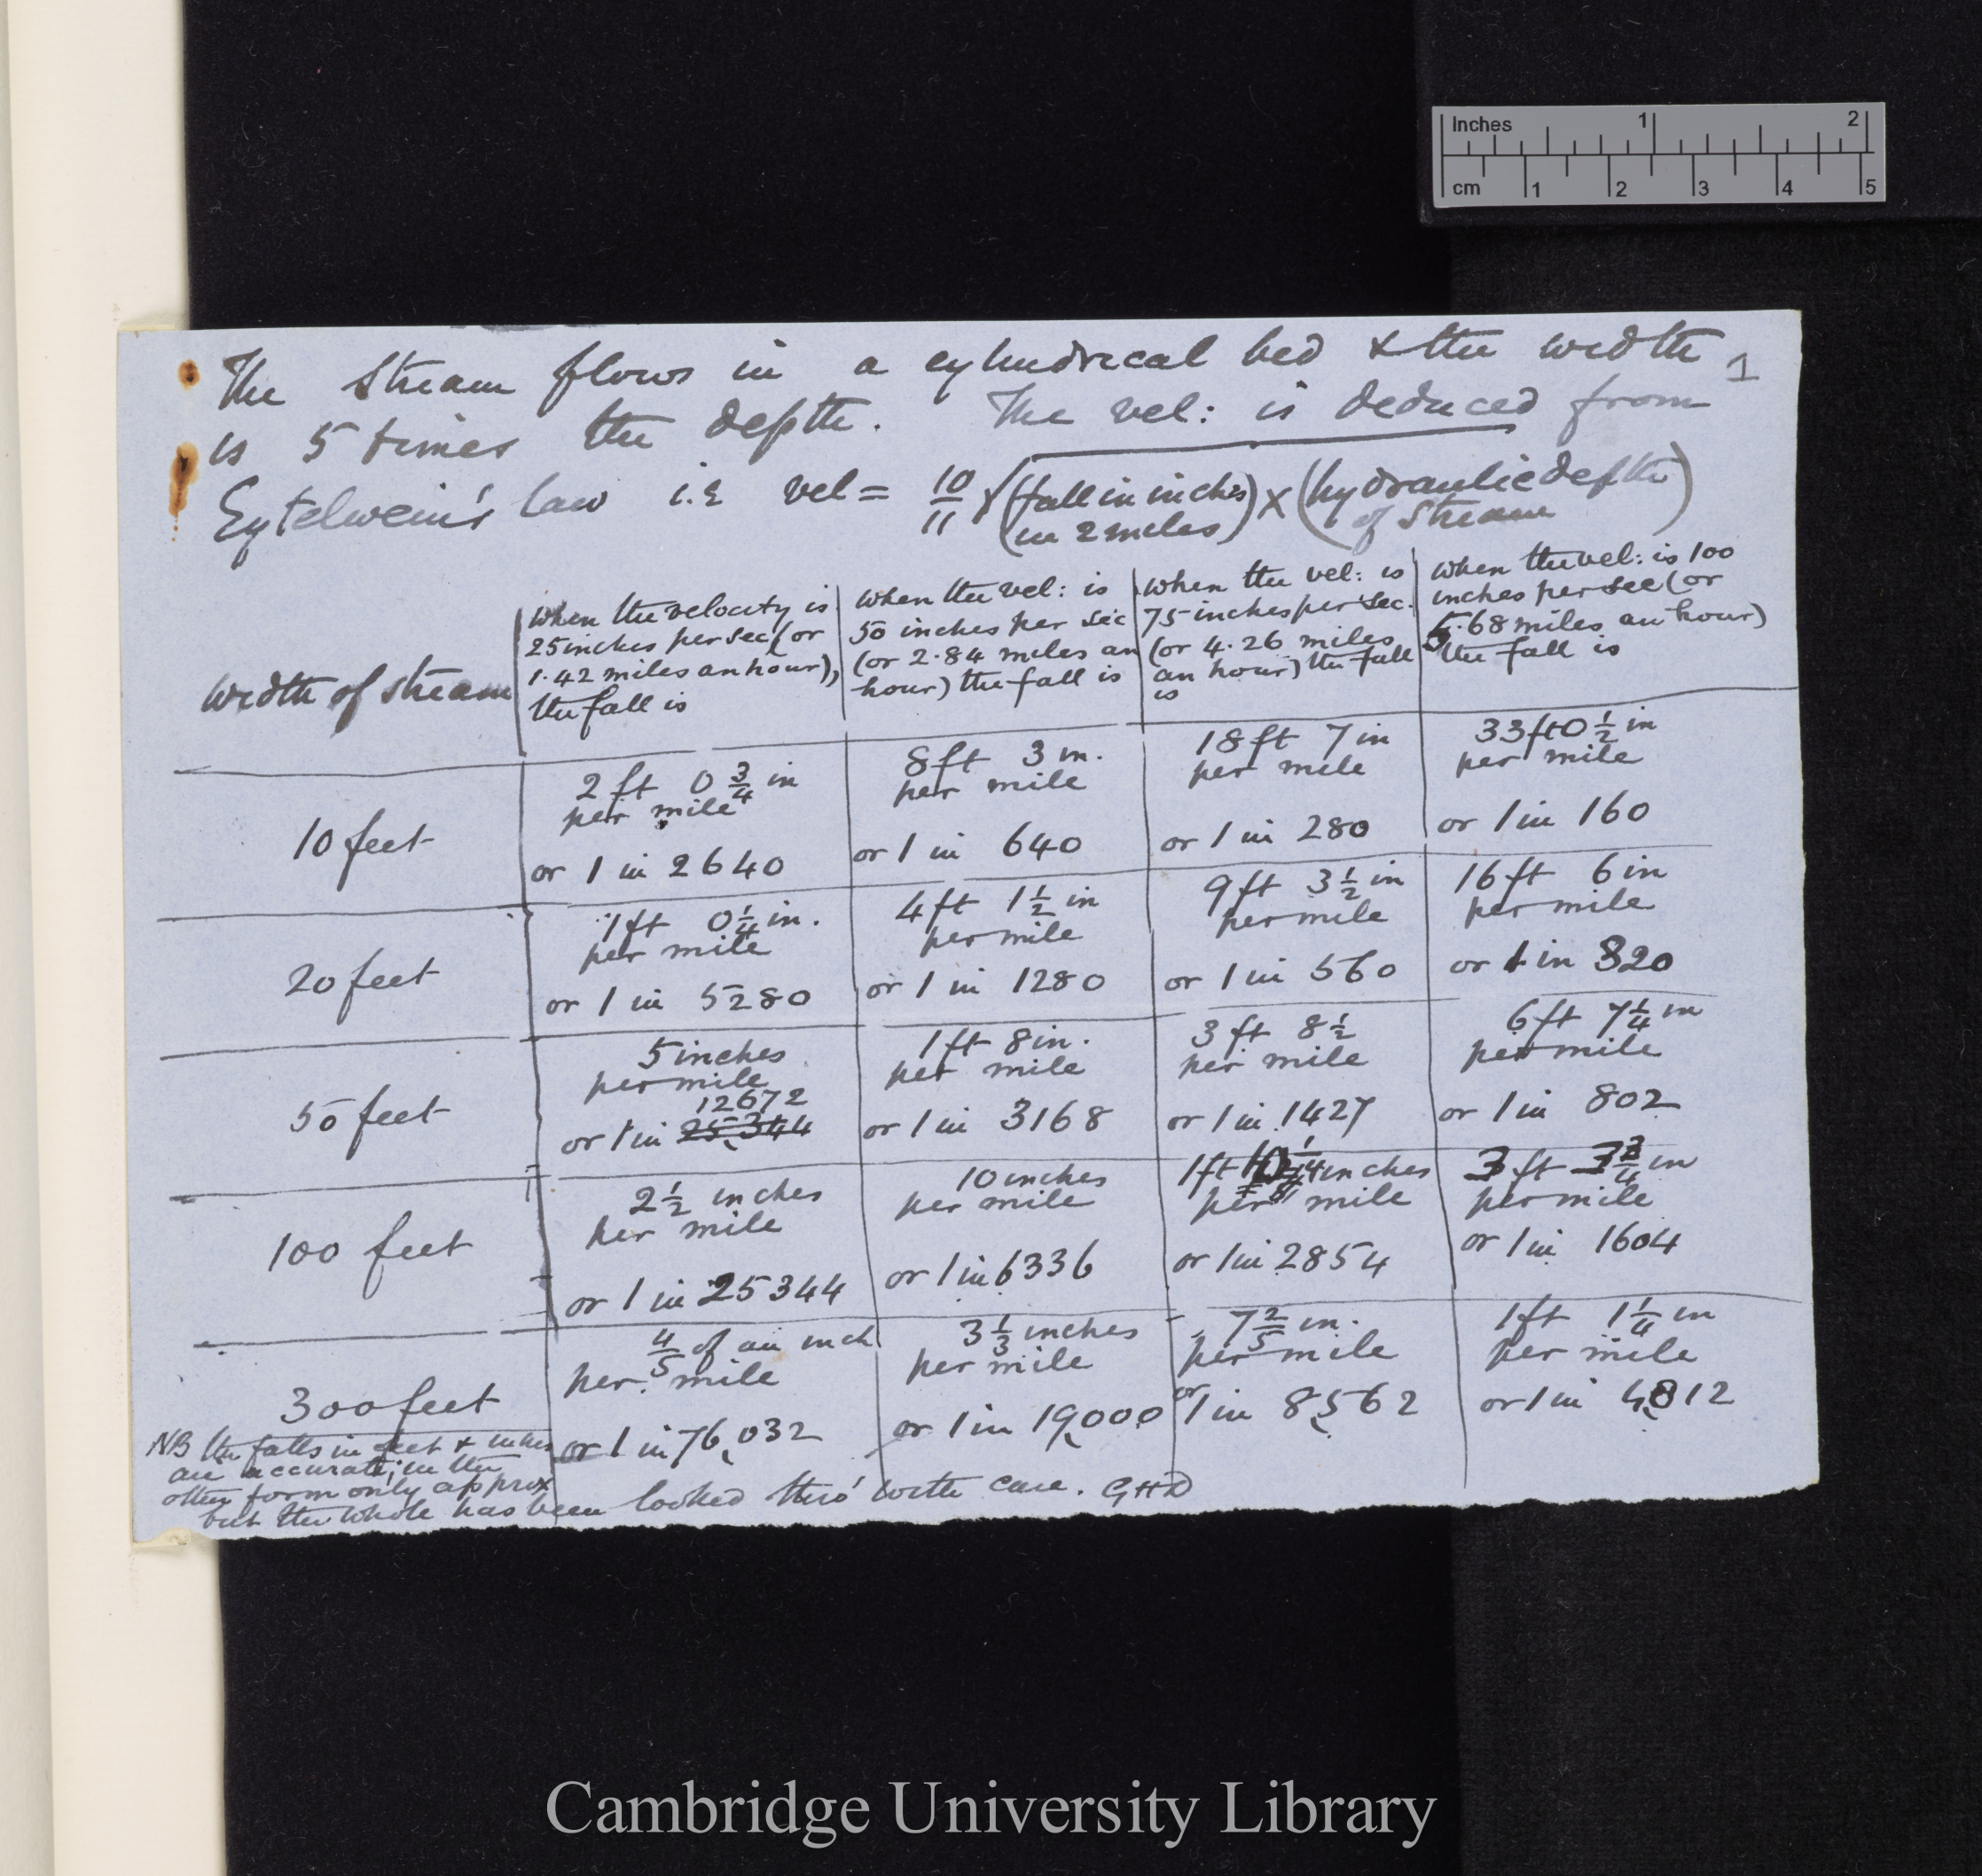 Inches 1 2
cm 1 2 3 4 5
The stream flows in a cylindrical bed & the width 1
is 5 times the depth. The vel: is deduced from
Eytelwein's law i.e vel = 10/11 √(fall in inches in 2 miles) × (hydraulic depth of stream)
Width of stream
When the velocity is
25 inches per sec (or
1.42 miles an hour),
the fall is
When the vel: is
50 inches per sec
(or 2.84 miles an
hour) the fall is
When the vel: is
75 inches per sec.
(or 4.26 miles
an hour) the fall
is
When the vel: is 100
inches per sec (or
5.68 miles an hour)
the fall is
10 feet
2 ft 0 3/4 in
per mile
or 1 in 2640
8 ft 3 in.
per mile
or 1 in 640
18 ft 7 in
per mile
or 1 in 280
33 ft 0 1/2 in
per mile
or 1 in 160
20 feet
1 ft 0 1/4 in.
per mile
or 1 in 5280
4 ft 1 1/2 in
per mile
or 1 in 1280
9 ft 3 1/2 in
per mile
or 1 in 560
16 ft 6 in
per mile
or 1 in 320
50 feet
5 inches
per mile
12672
or 1 in 25,344
1 ft 8 in.
per mile
or 1 in 3168
3 ft 8 1/2
per mile
or 1 in 1427
6 ft 7 1/4 in
per mile
or 1 in 802
100 feet
2 1/2 inches
per mile
or 1 in 25344
10 inches
per mile
or 1 in 6336
1 ft inches
per mile
or 1 in 2854
3 ft 3 3/4 in
per mile
or 1 in 1604
300 feet
4/5 of an inch
per mile
or 1 in 76,032
3 1/3 inches
per mile
or 1 in 19,000
7 2/5 in.
per mile
or 1 in 8,562
1 ft 1 1/4 in
per mile
or 1 in 4,812
NB the falls in feet & inches
are accurate; in the
other form only approx
but the whole has been looked thro' with care. GHD
Cambridge University Library